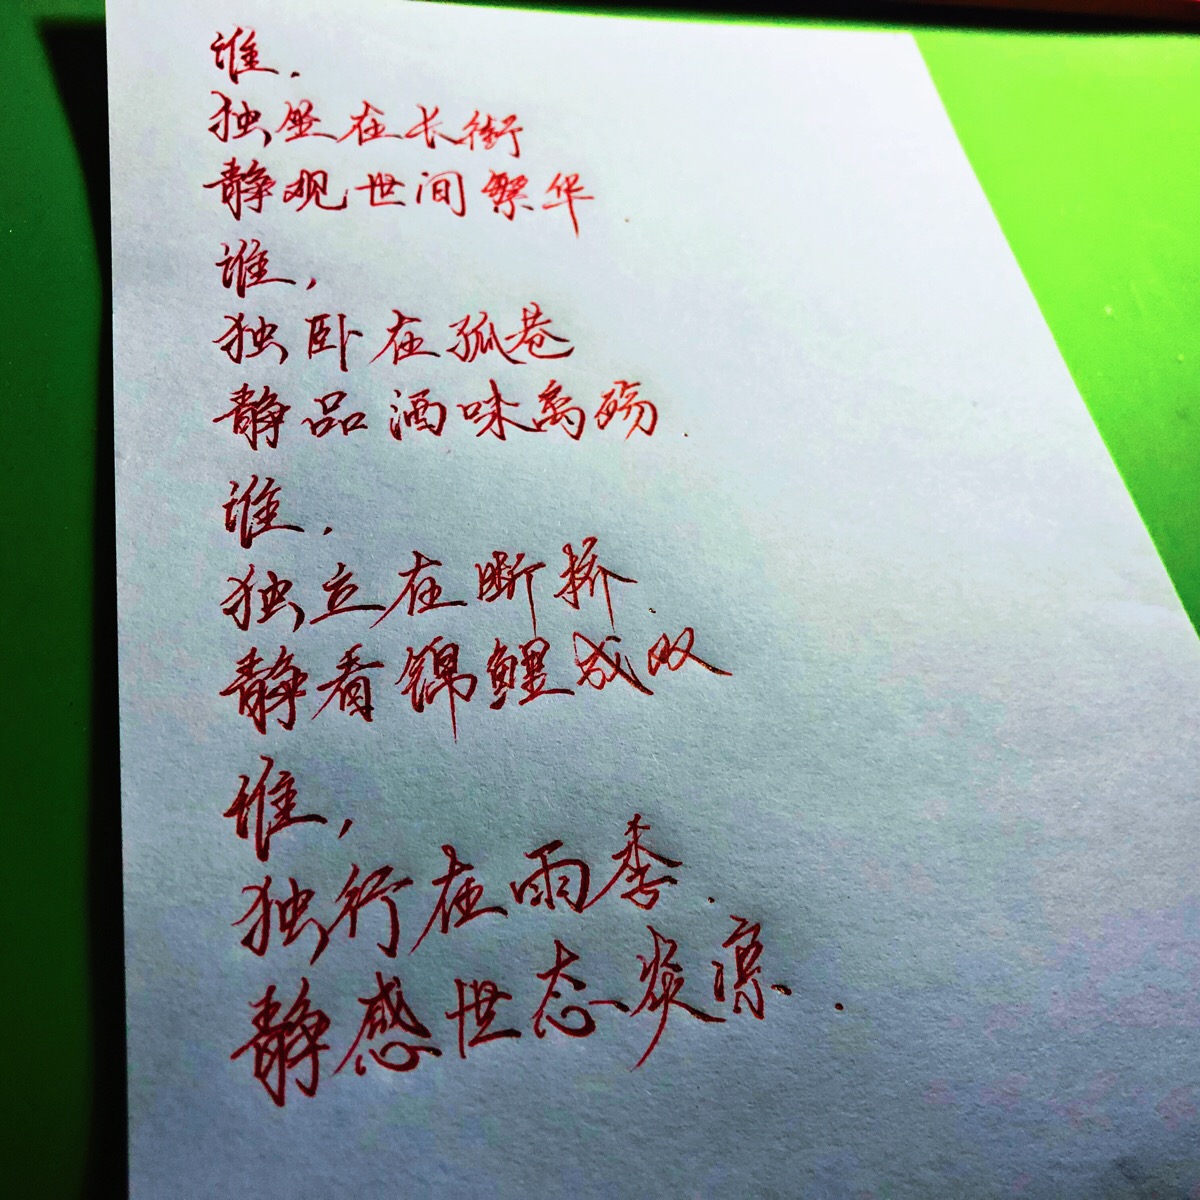 谁.
独坐在长街
静观世间繁华
谁,
独卧在孤巷
静品酒味离殇.
谁.
独立在断桥.
静看锦鲤成双
谁,
独行在雨季.
静感世态炎凉.